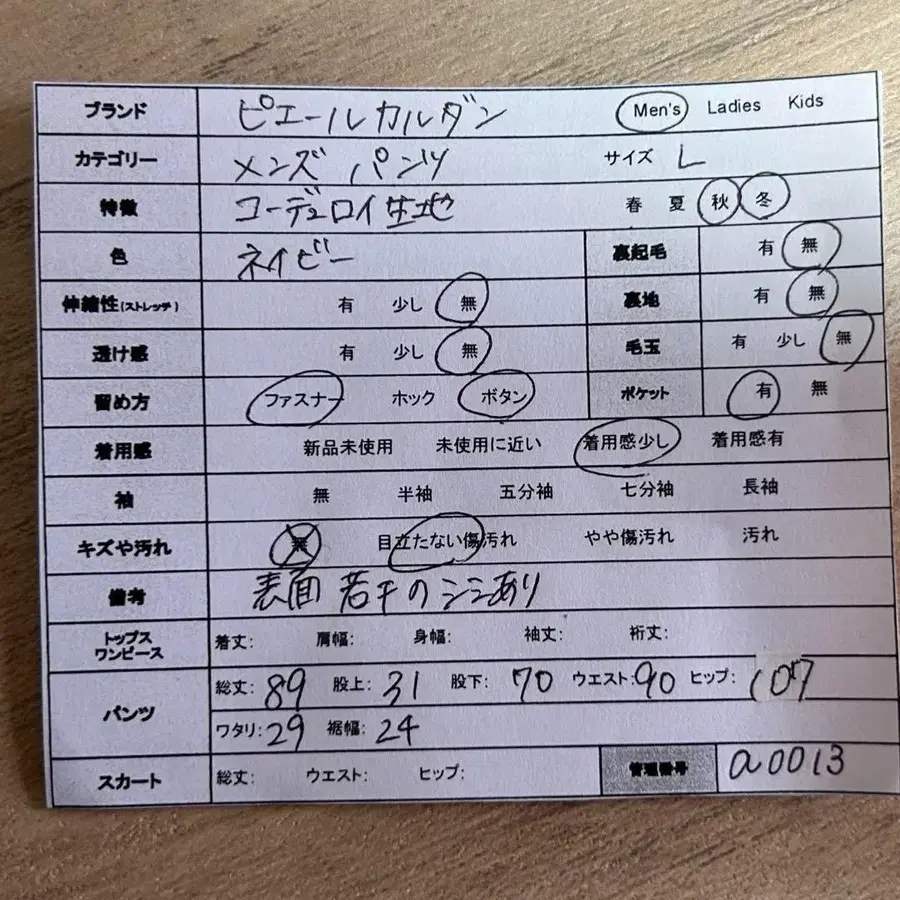 ブランド ピエールカルダン Men's Ladies Kids
カテゴリー メンズ パンツ サイズ L
特徴 コーデュロイ生地 春 夏 秋 冬
色 ネイビー 裏起毛 有 無
伸縮性(ストレッチ) 有 少し 無 裏地 有 無
透け感 有 少し 無 毛玉 有 少し 無
留め方 ファスナー ホック ボタン ポケット 有 無
着用感 新品未使用 未使用に近い 着用感少し 着用感有
袖 無 半袖 五分袖 七分袖 長袖
キズや汚れ 無 目立たない傷汚れ やや傷汚れ 汚れ
備考 表面 若干のシミあり
トップス
ワンピース 着丈: 肩幅: 身幅: 袖丈: 裄丈:
パンツ 総丈: 89 股上: 31 股下: 70 ウエスト: 90 ヒップ: 107
ワタリ: 29 裾幅: 24
スカート 総丈: ウエスト: ヒップ: 管理番号 a0013